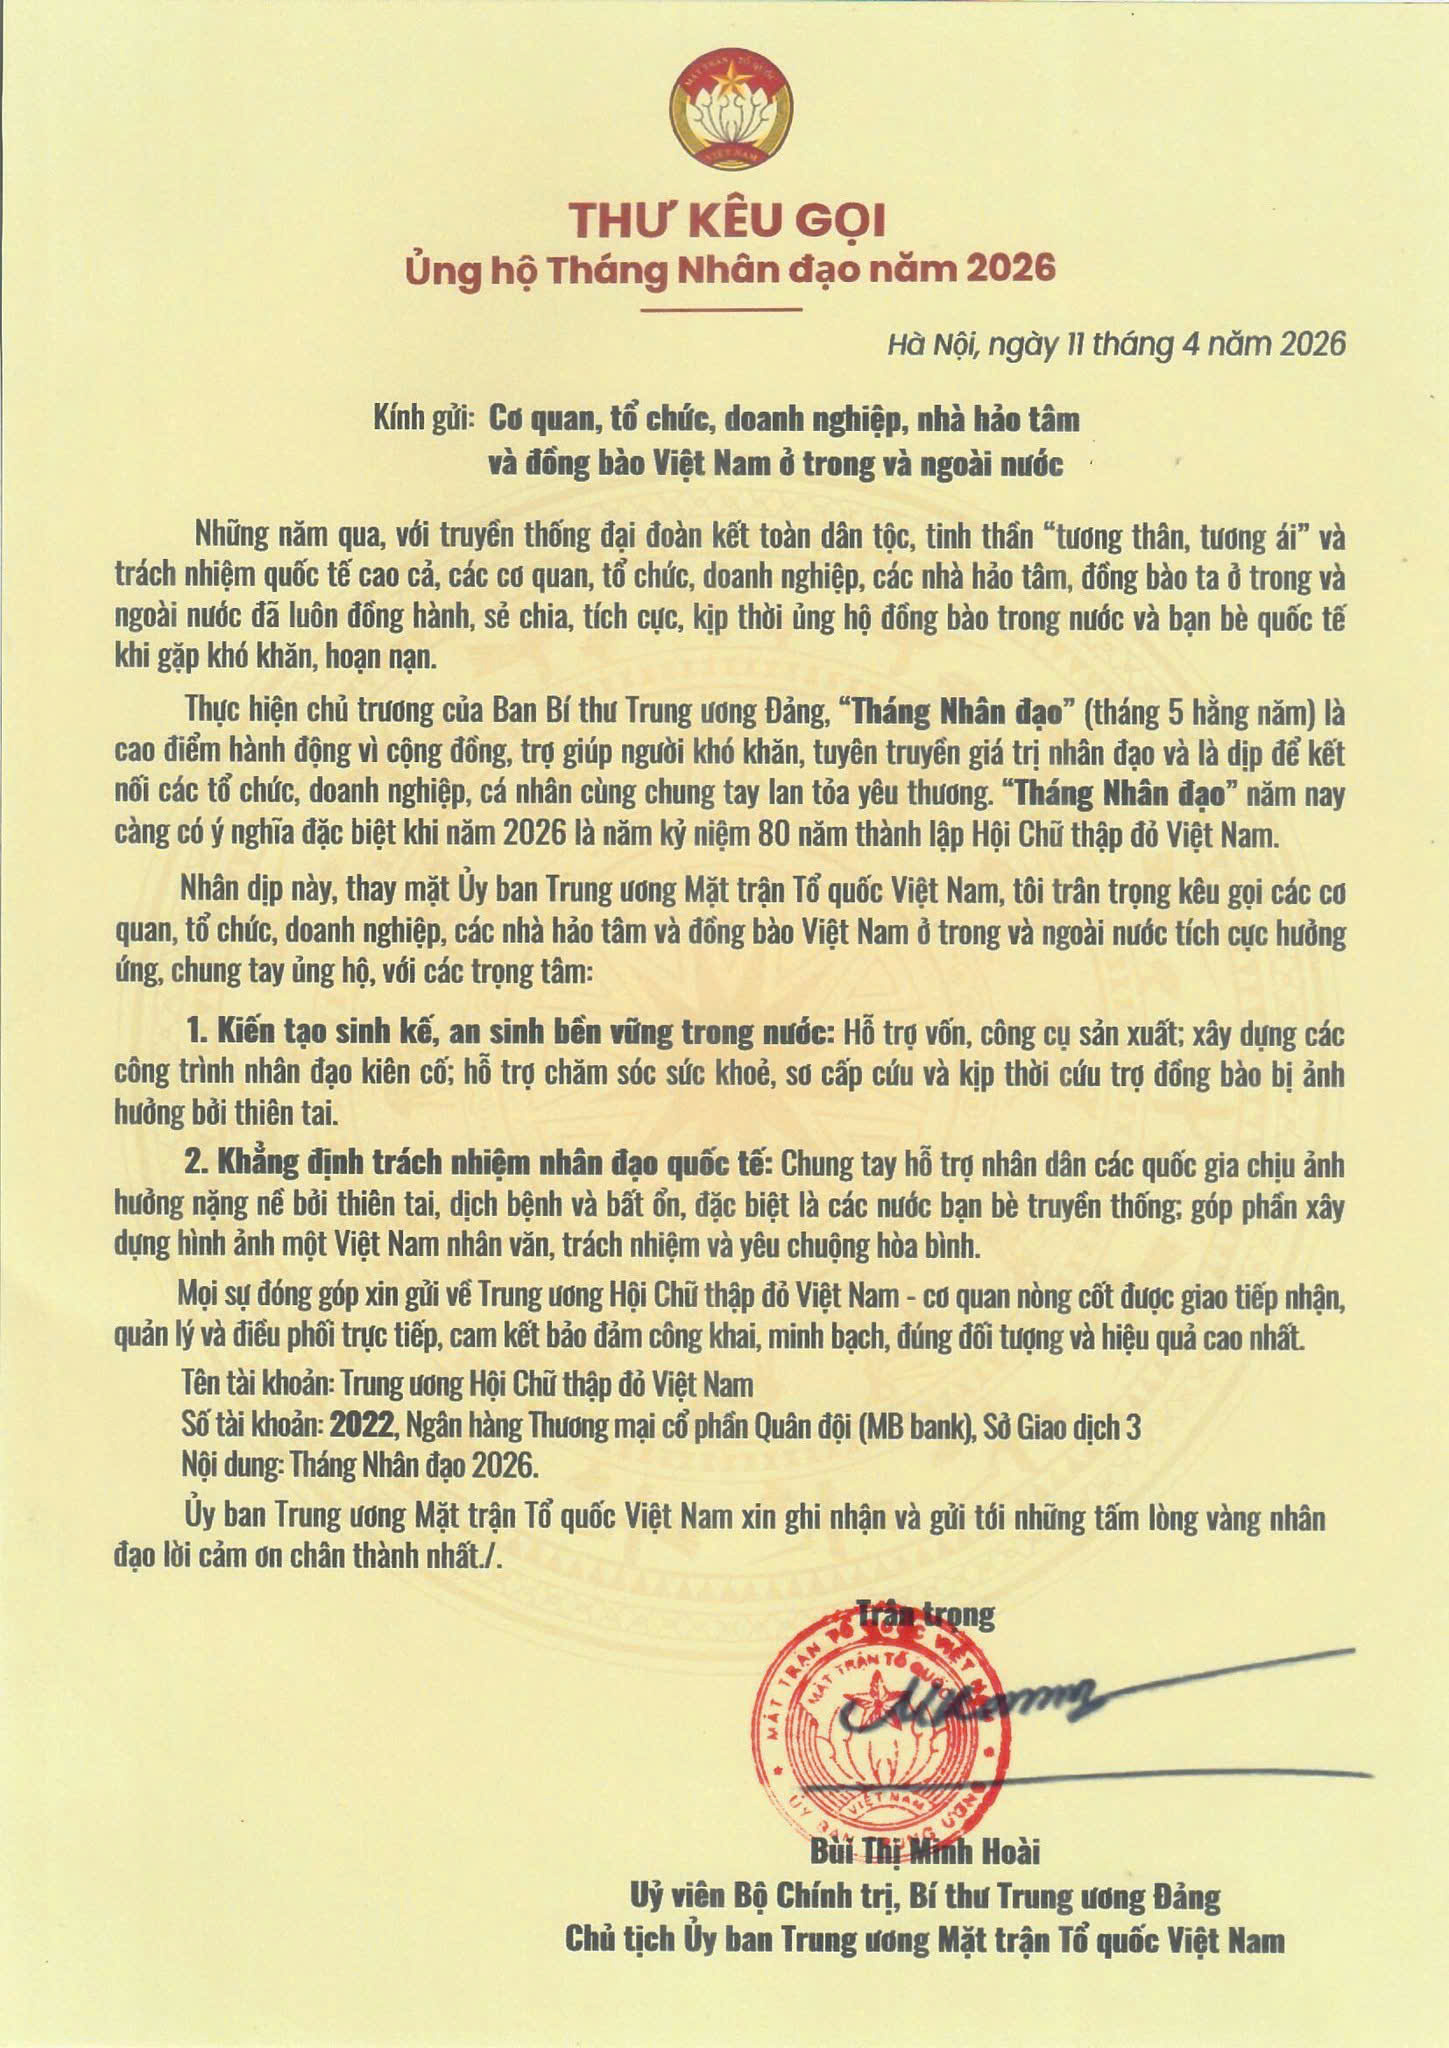 MẶT TRẬN TỔ QUỐC
VIỆT NAM
THƯ KÊU GỌI
Ủng hộ Tháng Nhân đạo năm 2026
Hà Nội, ngày 11 tháng 4 năm 2026
Kính gửi: Cơ quan, tổ chức, doanh nghiệp, nhà hảo tâm
và đồng bào Việt Nam ở trong và ngoài nước
Những năm qua, với truyền thống đại đoàn kết toàn dân tộc, tinh thần “tương thân, tương ái” và
trách nhiệm quốc tế cao cả, các cơ quan, tổ chức, doanh nghiệp, các nhà hảo tâm, đồng bào ta ở trong và
ngoài nước đã luôn đồng hành, sẻ chia, tích cực, kịp thời ủng hộ đồng bào trong nước và bạn bè quốc tế
khi gặp khó khăn, hoạn nạn.
Thực hiện chủ trương của Ban Bí thư Trung ương Đảng, “Tháng Nhân đạo” (tháng 5 hằng năm) là
cao điểm hành động vì cộng đồng, trợ giúp người khó khăn, tuyên truyền giá trị nhân đạo và là dịp để kết
nối các tổ chức, doanh nghiệp, cá nhân cùng chung tay lan tỏa yêu thương. “Tháng Nhân đạo” năm nay
càng có ý nghĩa đặc biệt khi năm 2026 là năm kỷ niệm 80 năm thành lập Hội Chữ thập đỏ Việt Nam.
Nhân dịp này, thay mặt Ủy ban Trung ương Mặt trận Tổ quốc Việt Nam, tôi trân trọng kêu gọi các cơ
quan, tổ chức, doanh nghiệp, các nhà hảo tâm và đồng bào Việt Nam ở trong và ngoài nước tích cực hưởng
ứng, chung tay ủng hộ, với các trọng tâm:
1. Kiến tạo sinh kế, an sinh bền vững trong nước: Hỗ trợ vốn, công cụ sản xuất; xây dựng các
công trình nhân đạo kiên cố; hỗ trợ chăm sóc sức khoẻ, sơ cấp cứu và kịp thời cứu trợ đồng bào bị ảnh
hưởng bởi thiên tai.
2. Khẳng định trách nhiệm nhân đạo quốc tế: Chung tay hỗ trợ nhân dân các quốc gia chịu ảnh
hưởng nặng nề bởi thiên tai, dịch bệnh và bất ổn, đặc biệt là các nước bạn bè truyền thống; góp phần xây
dựng hình ảnh một Việt Nam nhân văn, trách nhiệm và yêu chuộng hòa bình.
Mọi sự đóng góp xin gửi về Trung ương Hội Chữ thập đỏ Việt Nam - cơ quan nòng cốt được giao tiếp nhận,
quản lý và điều phối trực tiếp, cam kết bảo đảm công khai, minh bạch, đúng đối tượng và hiệu quả cao nhất.
Tên tài khoản: Trung ương Hội Chữ thập đỏ Việt Nam
Số tài khoản: 2022, Ngân hàng Thương mại cổ phần Quân đội (MB bank), Sở Giao dịch 3
Nội dung: Tháng Nhân đạo 2026.
Ủy ban Trung ương Mặt trận Tổ quốc Việt Nam xin ghi nhận và gửi tới những tấm lòng vàng nhân
đạo lời cảm ơn chân thành nhất./.
Trân trọng
MẶT TRẬN TỔ QUỐC VIỆT NAM
MẶT TRẬN TỔ QUỐC
VIỆT NAM
ỦY BAN TRUNG ƯƠNG
Bùi Thị Minh Hoài
Uỷ viên Bộ Chính trị, Bí thư Trung ương Đảng
Chủ tịch Ủy ban Trung ương Mặt trận Tổ quốc Việt Nam